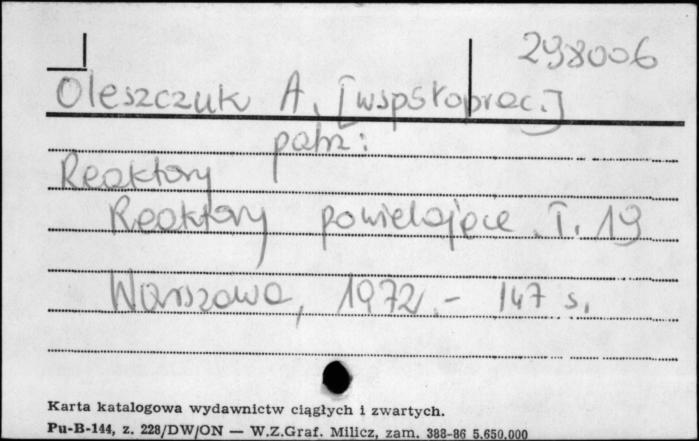 298006
Oleszczuk A. [współprac.]
patrz:
Reaktory
Reaktory powielające. T. 19
Warszawa, 1972.- 147 s.
Karta katalogowa wydawnictw ciągłych i zwartych.
Pu-B-144, z. 228/DW/ON — W.Z.Graf. Milicz, zam. 388-86 5.650.000